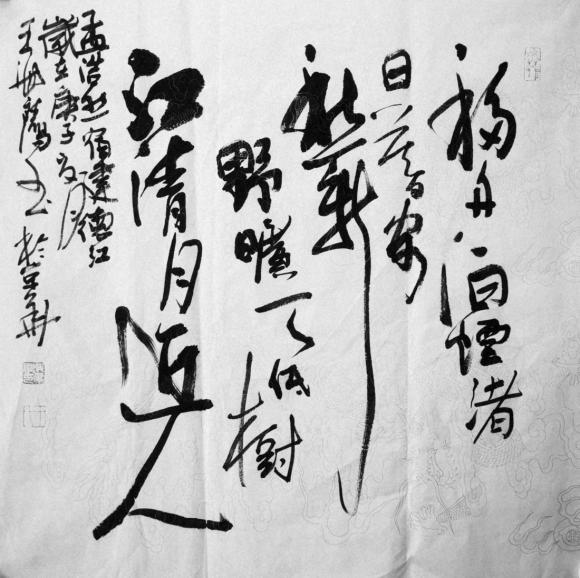 移舟泊煙渚
日暮客
愁新
野曠天低樹
江清月近人
孟浩然宿建德江
歲在庚子夏月
王 書於